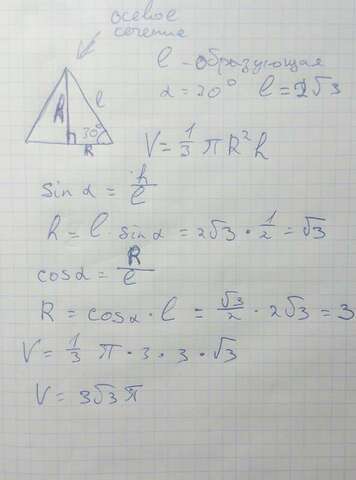 осевое
сечение
l - образующая
α = 30° l = 2√3
h l
30°
R
V = 1/3 π R² h
sin α = h/l
h = l · sin α = 2√3 · 1/2 = √3
cos α = R/l
R = cos α · l = √3/2 · 2√3 = 3
V = 1/3 π · 3 · 3 · √3
V = 3√3 π